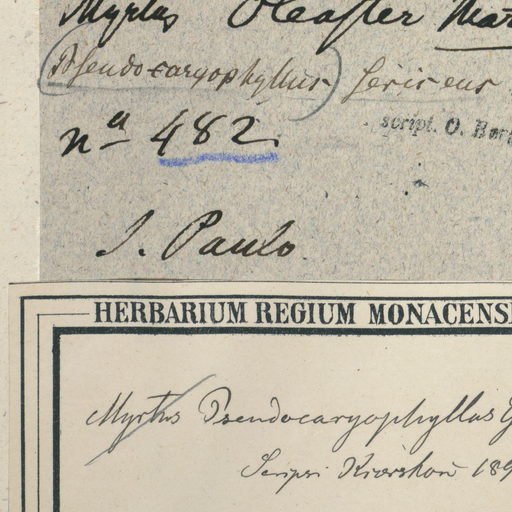 Myrtus Oleaster Mar
(Pseudocaryophyllus) sericeus
nª 482.
script. O. Ber
S. Paulo.
HERBARIUM REGIUM MONACENS
Myrtus Pseudocaryophyllus
Scripsi Kiærskou 189